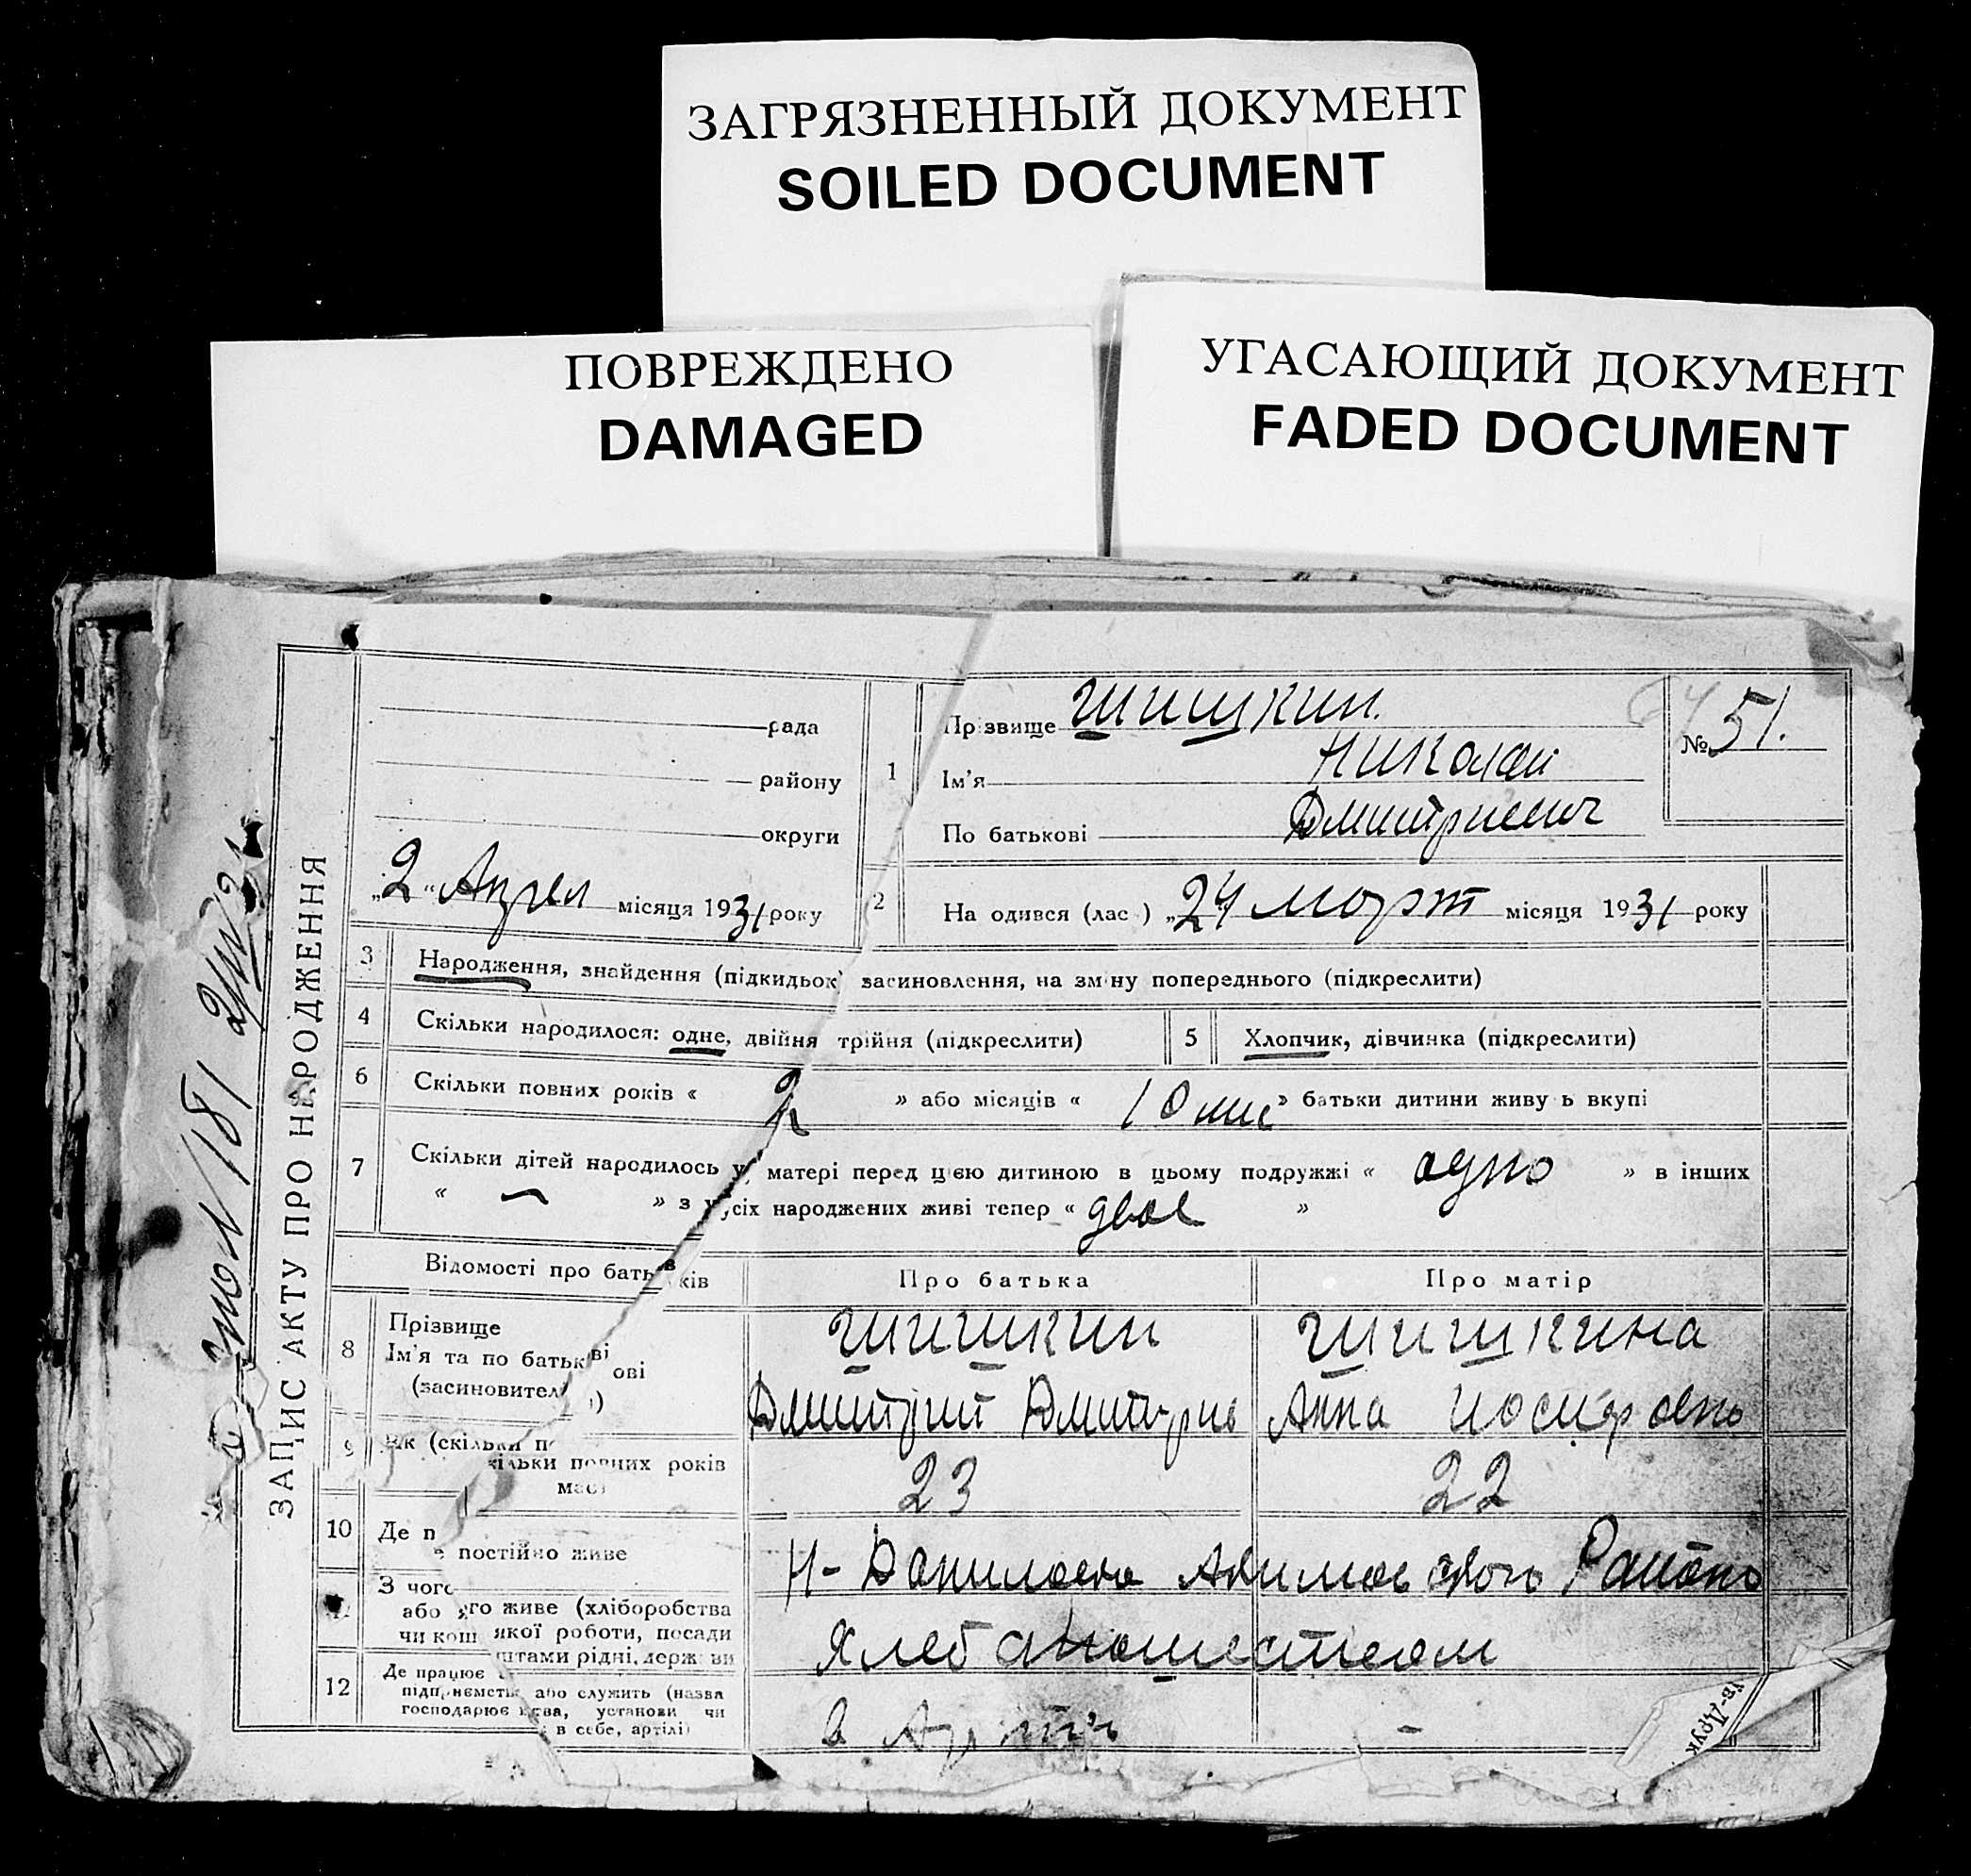 ЗАГРЯЗНЕННЫЙ ДОКУМЕНТ
SOILED DOCUMENT
ПОВРЕЖДЕНО
DAMAGED
УГАСАЮЩИЙ ДОКУМЕНТ
FADED DOCUMENT
ЗАПИС АКТУ ПРО НАРОДЖЕННЯ
рада
району
округи
„2“ Апрел місяця 1931 року
1
Прізвище Шишкин.
Ім'я Николай
По батькові Дмитриевич
№ 51.
2 На одився (лас ) „24“ март місяця 1931 року
3 Народження, знайдення (підкидьок) засиновлення, на зміну попереднього (підкреслити)
4 Скільки народилося: одне, двійня трійня (підкреслити)
5 Хлопчик, дівчинка (підкреслити)
6 Скільки повних років « 2 » або місяців « 10 мис » батьки дитини живу ь вкупі
7 Скільки дітей народилось у матері перед цією дитиною в цьому подружжі « одно » в інших
« — » з усіх народжених живі тепер « двое »
Відомості про батьків
Про батька
Про матір
8 Прізвище
Ім'я та по батькові
(засиновител )
Шишкин
Дмитрий Дмитрие
Шишкина
Анна Иосифовно
9 Вік (скільки п
кільки повних років
має)
23
22
10 Де п
е постійно живе
Н- Даниловка Акимовского Района
З чого
або його живе (хліборобства
чи кош якої роботи, посади
штами рідні, держави
Хлебопашеством
12 Де працює
підприємств або служить (назва
господарює ства, установи чи
в себе, артілі)
в Артели
-